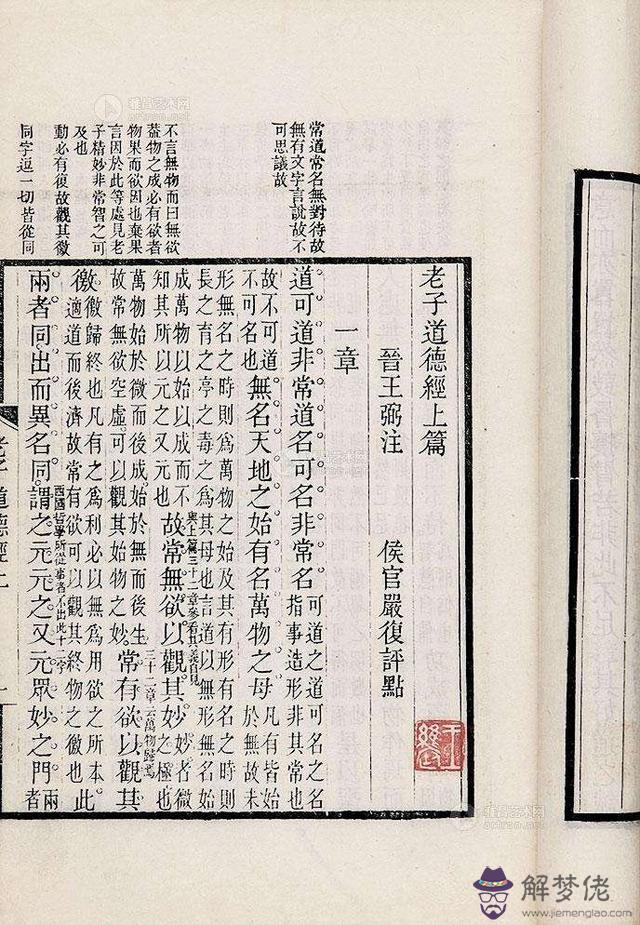 常道常名無對待故
無有文字言說故不
可思議故
不言無物而曰無欲
蓋物之成必有欲者
物果而欲因也棄果
言因於此等處見老
子精妙非常智之可
及也
動必有復故觀其徼
同字逗一切皆從同
老子道德經上篇
晉王弼注 侯官嚴復評點
一章
道可道非常道名可名非常名
可道之道可名之名
指事造形非其常也
故不可道
不可名也
無名天地之始有名萬物之母
凡有皆始
於無故未
形無名之時則為萬物之始及其有形有名之時則
長之育之亭之毒之為其母也言道以無形無名始
成萬物以始以成而不
知其所以元之又元也
故常無欲以觀其妙
妙者微
之極也
萬物始於微而後成始於無而後生
故常無欲空虛可以觀其始物之妙
常有欲以觀其
徼
徼歸終也凡有之為利必以無為用欲之所本
適道而後濟故常有欲可以觀其終物之徼也
此
兩者同出而異名同謂之元元之又元眾妙之門
兩
者
三十二章云萬物歸焉
西國哲學所從事者不出此十二字
老子道德經上
一
解梦佬
www.jiemenglao.com